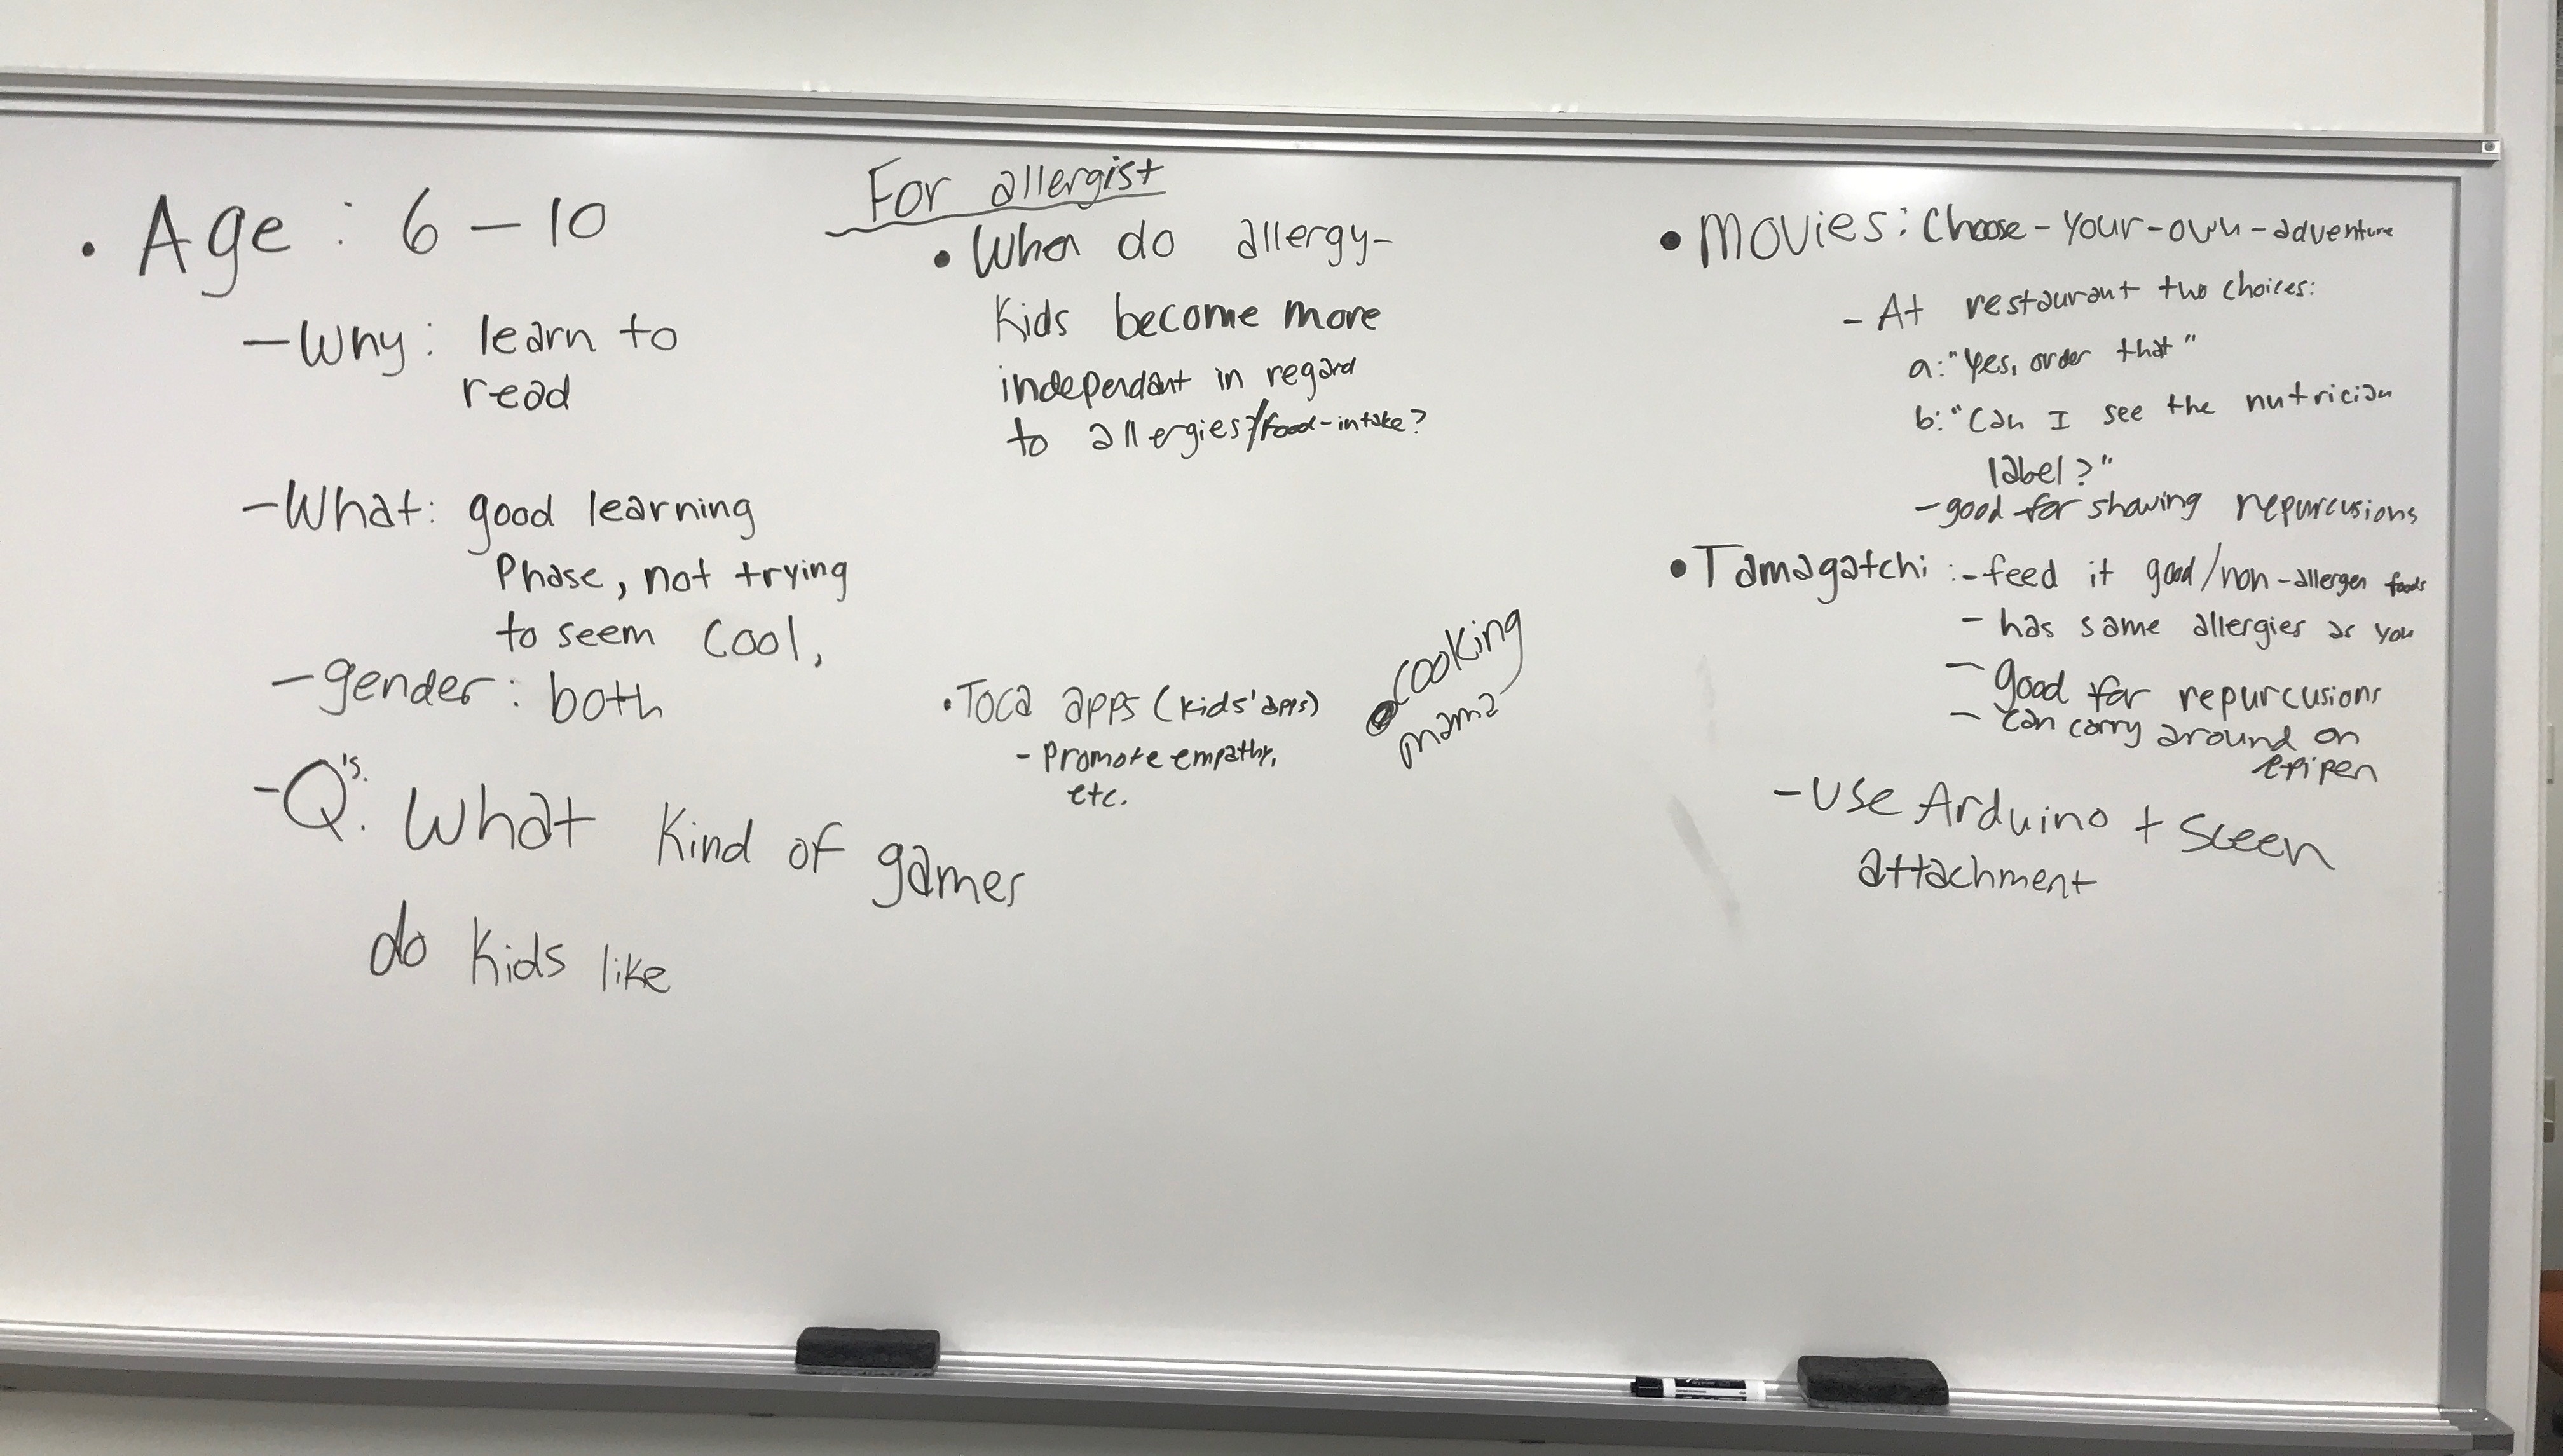 • Age : 6 - 10
- Why : learn to
read
- What: good learning
Phase, not trying
to seem cool,
- gender : both
- Q's: What kind of games
do kids like
For allergist
• When do allergy-
kids become more
independant in regard
to allergies?/food-intake?
• Toca apps (kids' apps)
- Promote empathy,
etc.
• cooking
mama
• Movies: Choose-your-own-adventure
- At restaurant two choices:
a: "Yes, order that"
b: "Can I see the nutrician
label?"
- good for showing repurcusions
• Tamagatchi : - feed it good/non-allergen foods
- has same allergies as you
- good for repurcusions
- can carry around on
epipen
- Use Arduino + Sceen
attachment